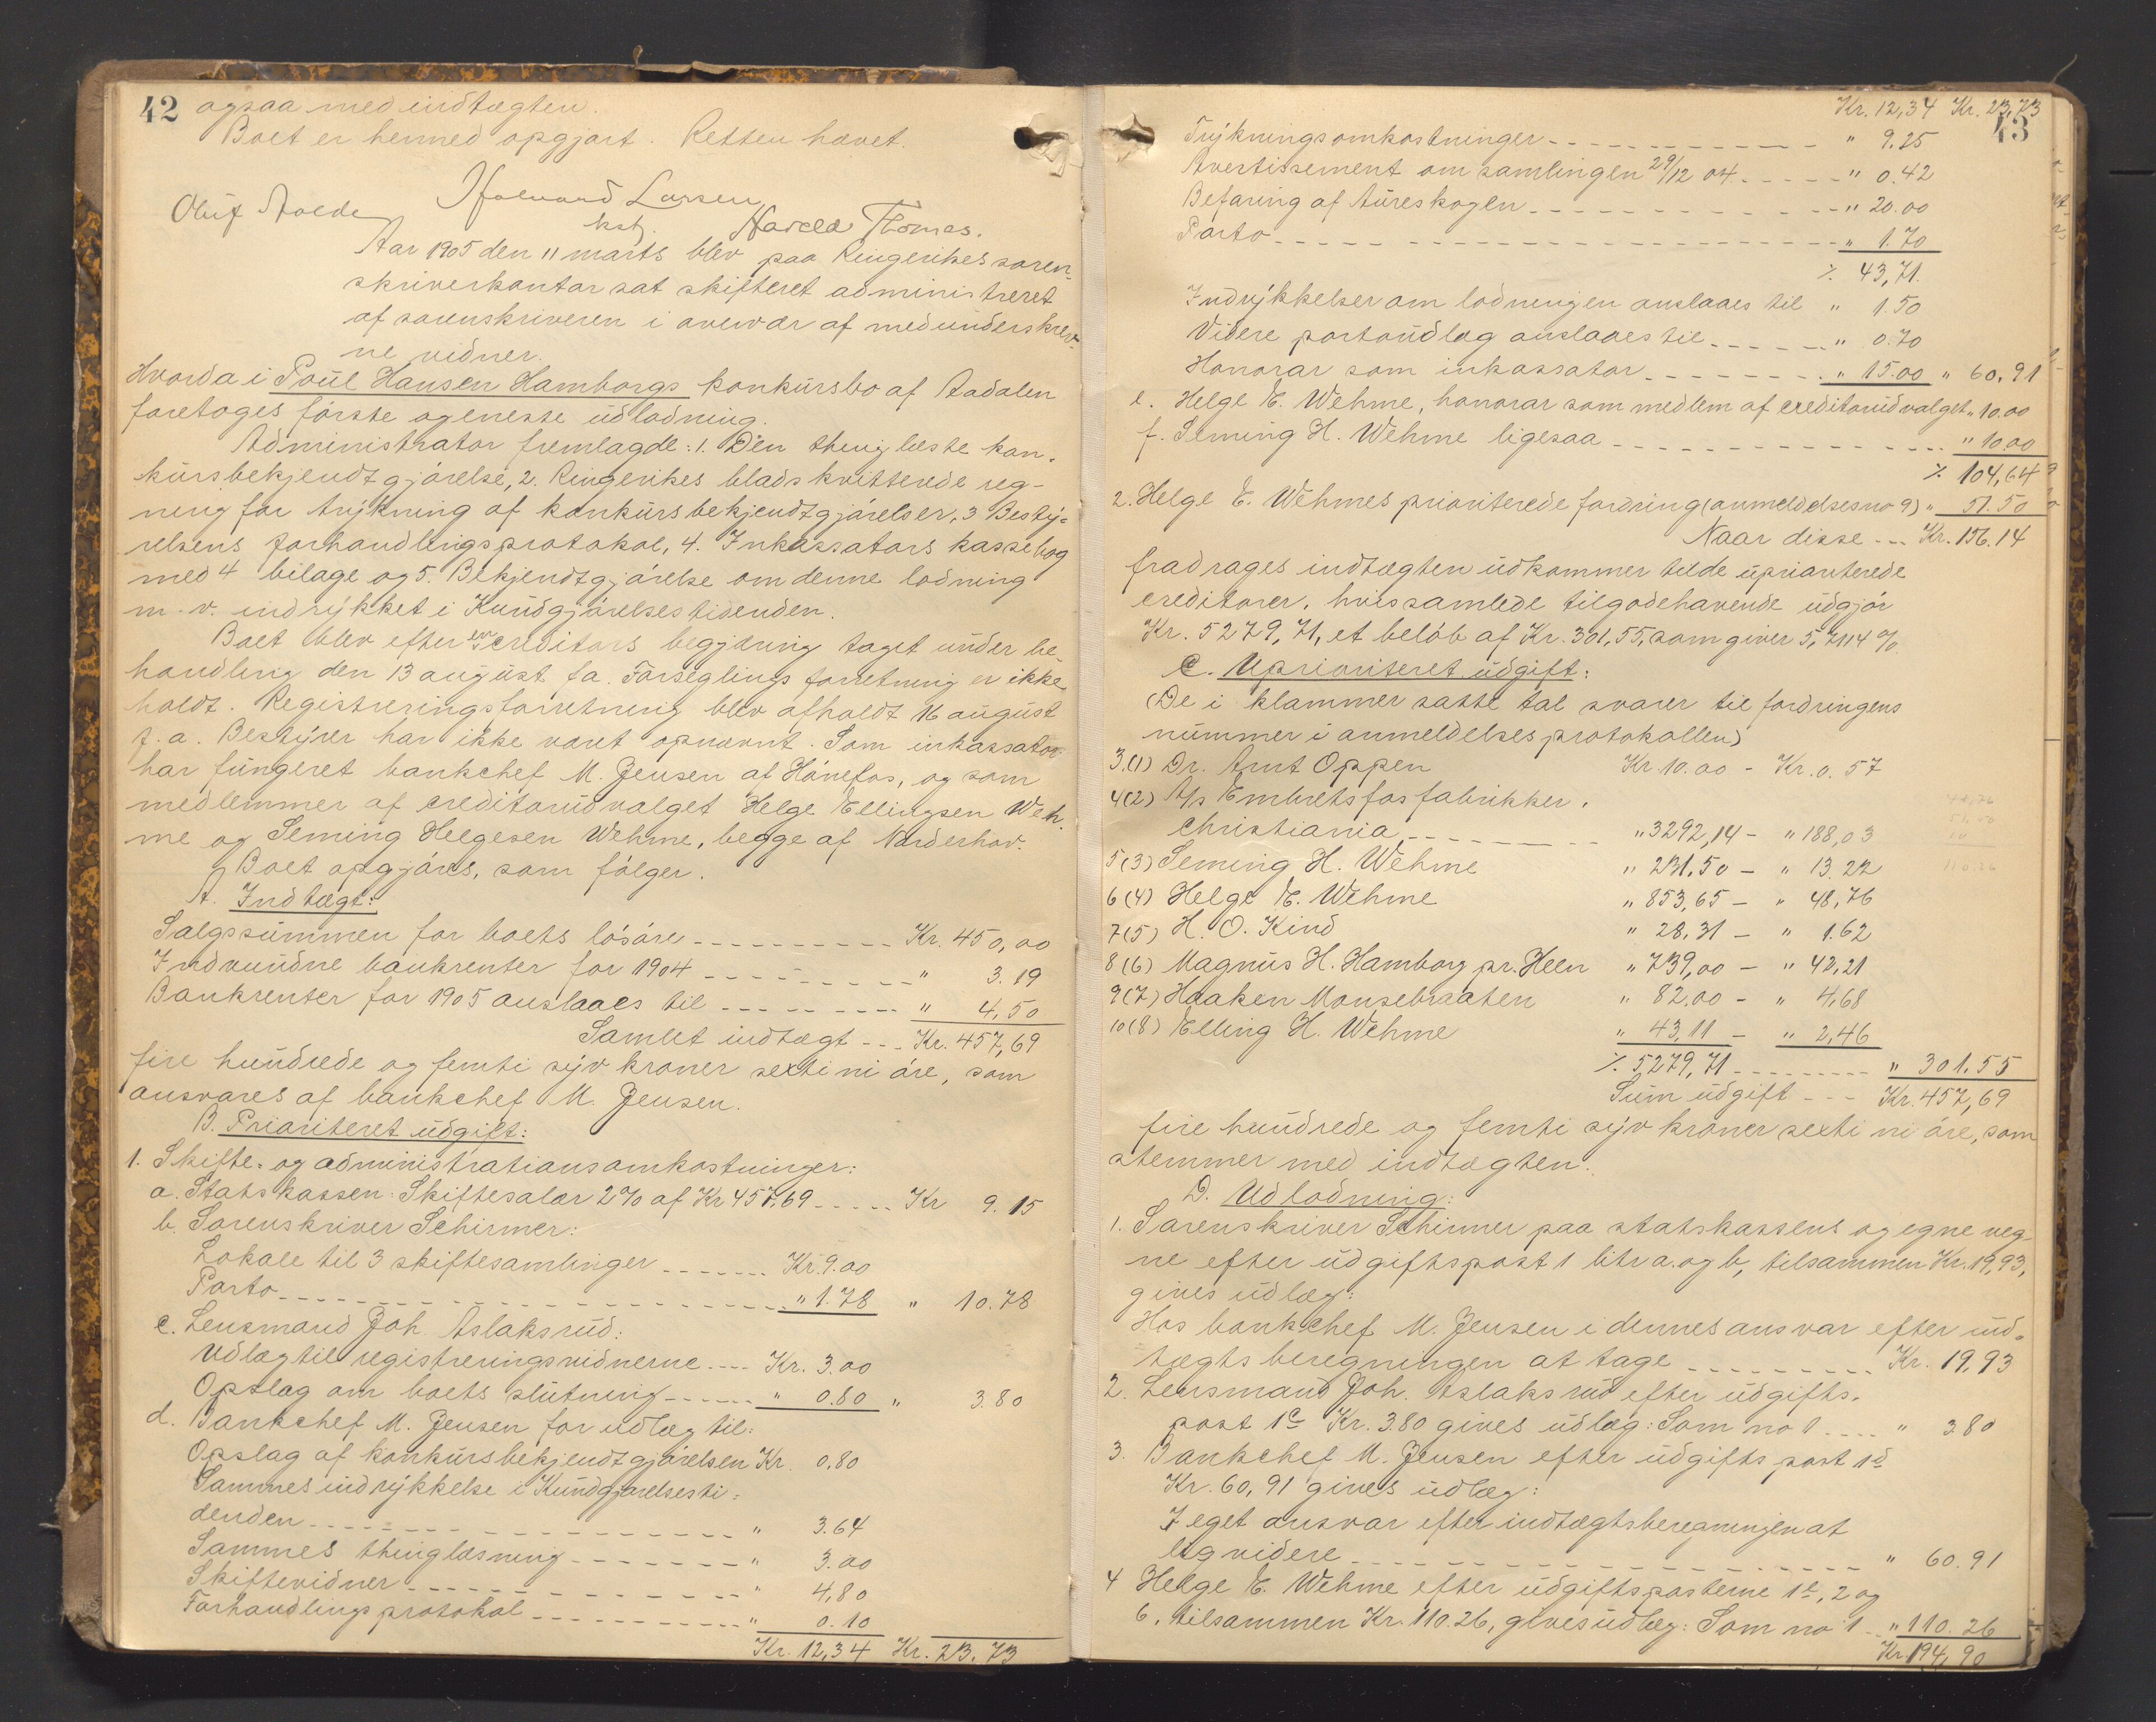 42 ogsaa med indtægten.
Boet er hermed opgjort. Retten hævet.
Halvord Larsen
Oluf Harald Thomes.
kst.
Aar 1905 den 11 marts blev paa Ringerikes soren-
skriverkontor sat skifteret administreret
af sorenskriveren i overvær af medunderskrev-
ne vidner.
Hvorda i Poul Hansen Hamborgs konkursbo af Aadalen
foretoges første og eneste udlodning.
Administrator fremlagde: 1. Den thinglæste kon-
kursbekjendtgjørelse, 2. Ringerikes blads kvitterede reg-
ning for trykning af konkursbekjendtgjørelser, 3 Besty-
relsens forhandlingsprotokol, 4. Inkassators kassebog
med 4 bilage og 5. Bekjendtgjørelse om denne lodning
m. v. indrykket i Kundgjørelsestidenden.
Boet blev efter en creditors begjæring taget under be-
handling den 13 august f.a. Forseglingsforretning er ikke
holdt. Registreringsforretning blev afholdt 16 august
f. a. Bestyrer har ikke været opnævnt. Som inkassator
har fungeret bankchef M. Jensen af Hønefos, og som
medlemmer af creditorudvalget Helge Ellingsen Weh-
me og Seming Helgesen Wehme, begge af Norderhov.
Boet opgjøres, som følger.
A. Indtægt:
Salgssummen for boets løsøre ---------- Kr. 450,00
Indvundne bankrenter for 1904 -------- " 3.19
Bankrenter for 1905 anslaaes til -------- " 4,50
Samlet indtægt --- Kr. 457,69
fire hundrede og femti syv kroner sexti ni øre, som
ansvares af bankchef M. Jensen.
B. Prioriteret udgift:
1. Skifte- og administrationsomkostninger:
a. Statskassen: Skiftesalær 2% af Kr 457.69 ----- Kr 9.15
b. Sorenskriver Schirmer:
Lokale til 3 skiftesamlinger ------- Kr. 9.00
Porto -------------------- " 1.78 " 10.78
c. Lensmand Joh. Aslaksrud:
Udlæg til registreringsvidnerne ---- Kr. 3.00
Opslag om boets slutning ------ " 0.80 " 3.80
d. Bankchef M. Jensen for udlæg til:
Opslag af konkursbekjendtgjørelsen Kr. 0,80
Sammes indrykkelse i Kundgjørelsesti-
denden ------------------ " 3.64
Sammes thinglæsning ------- " 3.00
Skiftevidner ------------- " 4,80
Forhandlingsprotokol --------- " 0.10
Kr. 12,34 Kr. 23.73
Kr. 12,34 Kr. 23,73
43
Trykningsomkostninger ------------ " 9.25
Avertissement om samlingen 29/12 04 ----- " 0.42
Befaring af Aureskogen ------------ " 20.00
Porto ---------------------- " 1.70
% 43,71.
Indrykkelser om lodningen anslaaes til " 1.50
Videre portoudlæg anslaaes til ------ " 0.70
Honorar som inkassator -------- " 15.00 " 60.91
e. Helge E. Wehme, honorar som medlem af creditorudvalget " 10.00
f. Seming H. Wehme ligesaa --------------- " 10.00
% 104,64
2. Helge E. Wehmes prioriterede fordring (anmeldelsesno 9) " 51.50
Naar disse --- Kr. 156.14
fradrages indtægten udkommer til de uprioriterede
creditorer, hvis samlede tilgodehavende udgjør
Kr. 5279,71, et beløb af Kr. 301,55, som giver 5,7114 %.
C. Uprioriteret udgift:
(De i klammer satte tal svarer til fordringens
nummer i anmeldelsesprotokollen)
3.(1) Dr. Arnt Oppen Kr. 10.00 - Kr. 0.57
4(2) A/s Embretsfos fabrikker,
Christiania --------- " 3292,14 - " 188,03
5(3) Seming H. Wehme " 231.50 - " 13.22
6(4) Helge E. Wehme " 853,65 - " 48,76
7(5) H. O. Kind " 28,31 - " 1.62
8(6) Magnus H. Hamborg pr. Heen " 739,00 - " 42,21
9(7) Haaken Monsebraaten " 82.00 - " 4,68
10(8) Elling H. Wehme " 43,11 - " 2,46
% 5279,71 --------- " 301.55
Sum udgift --- Kr. 457,69
fire hundrede og femti syv kroner sexti ni øre, som
stemmer med indtægten.
D. Udlodning:
1. Sorenskriver Schirmer paa statskassens og egne veg-
ne efter udgiftspost 1 litr a. og b, tilsammen Kr. 19,93,
gives udlæg:
Hos bankchef M. Jensen i dennes ansvar efter ind-
tægtsberegningen at tage --------- Kr. 19,93
2. Lensmand Joh. Aslaksrud efter udgifts-
post 1c Kr. 3.80 gives udlæg: Som no 1 ---- " 3.80
3. Bankchef M. Jensen efter udgiftspost 1d
Kr. 60,91 gives udlæg:
I eget ansvar efter indtægtsberegningen at
ligvidere ------------------ " 60.91
4 Helge E. Wehme efter udgiftsposterne 1e, 2 og
6, tilsammen Kr. 110.26, gives udlæg: Som no 1 -- " 110.26
Kr. 194,90